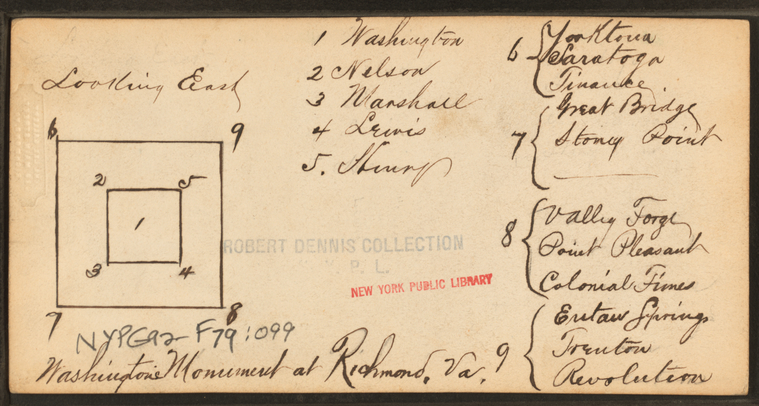 Looking East
6 9
2 5
1
3 4
7 8
1 Washington
2 Nelson
3 Marshall
4 Lewis
5. Henry
6 Yorktown
Saratoga
Finance.
7 Great Bridge
Stoney Point
8 Valley Forge
Point Pleasant
Colonial Times
9 Eutaw Springs
Trenton
Revolution
ROBERT DENNIS COLLECTION
P. L.
NEW YORK PUBLIC LIBRARY
NYPG92-F79:099
Washington's Monument at Richmond, Va.